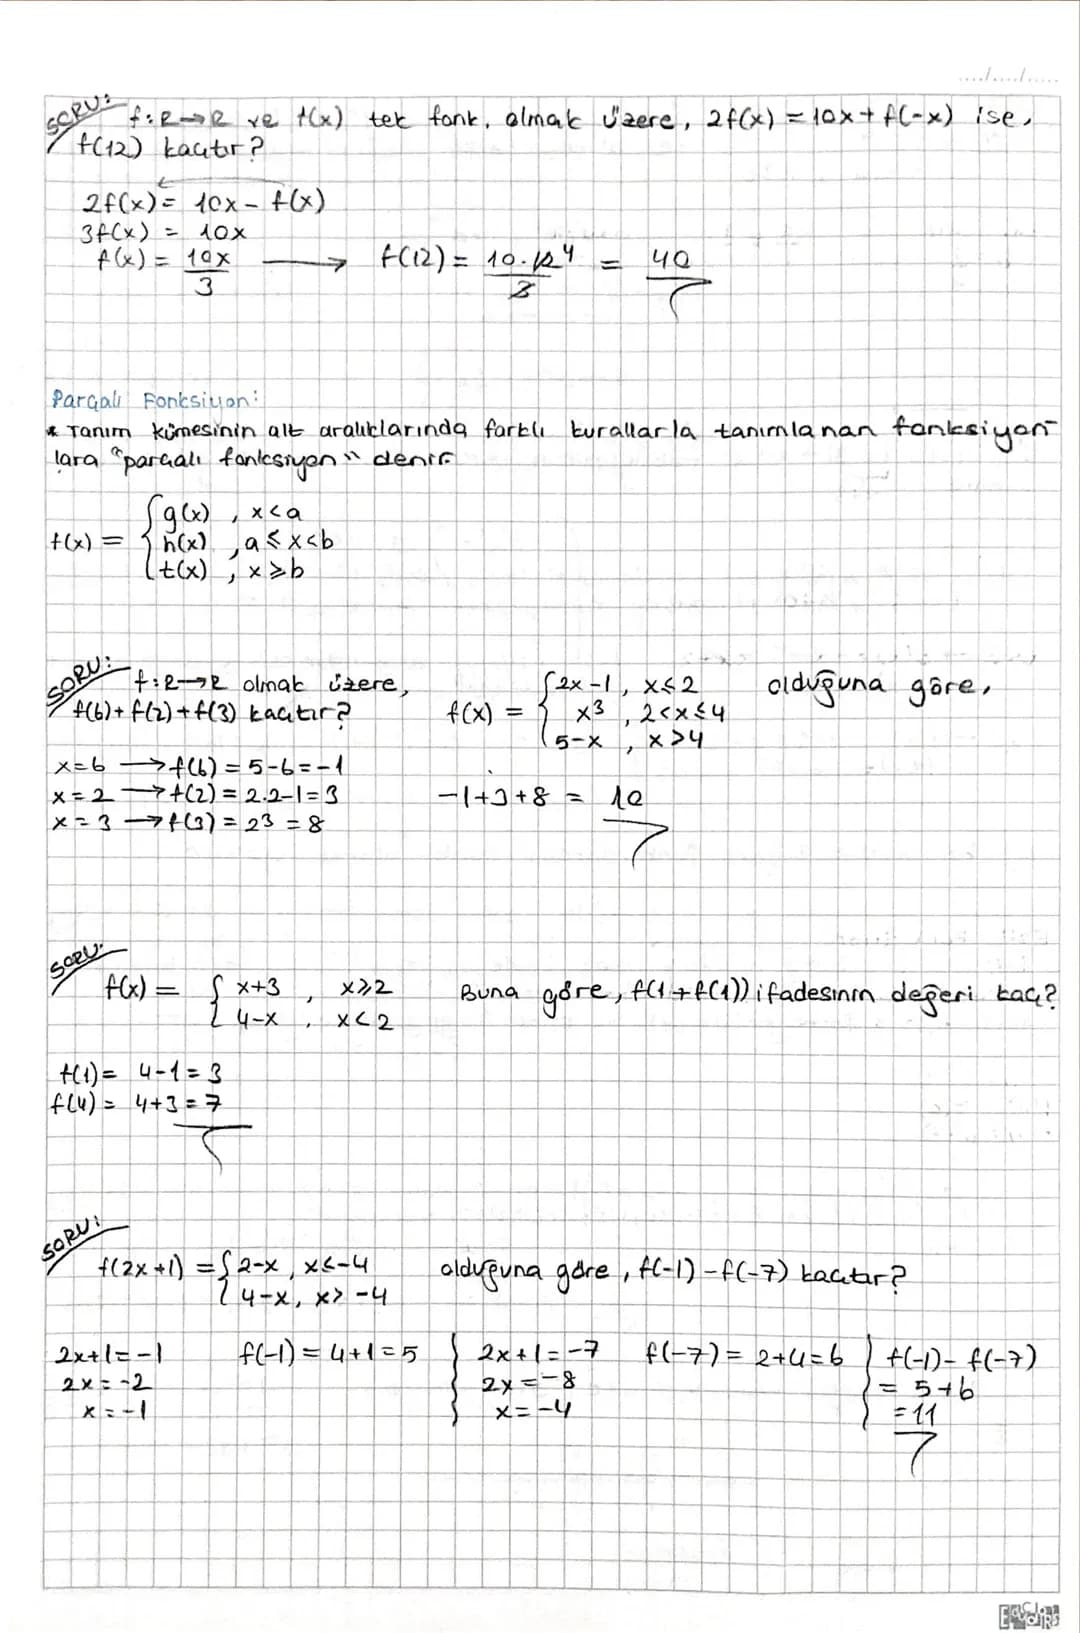 ...../...../.....
SORU: f:R→R ve f(x) tek fonk. olmak üzere, 2f(x) = 10x + f(-x) ise,
f(12) kaçtır?
2f(x) = 10x - f(x)
3f(x) = 10x
f(x) = 10x/3 → f(12) = 10.12/3 4 = 40
Parçalı Fonksiyon:
* Tanım kümesinin alt aralıklarında farklı kurallarla tanımlanan fonksiyon
lara "parçalı fonksiyon" denir.
f(x) = { g(x) , x<a
h(x) , a≤x<b
t(x) , x≥b
SORU: f:R→R olmak üzere, f(x) = { 2x-1, x≤2 olduğuna göre,
f(6)+f(2)+f(3) kaçtır? x3 , 2<x≤4
5-x , x>4
x=6 → f(6) = 5-6 = -1
x=2 → f(2) = 2.2-1 = 3 -1+3+8 = 10
x=3 → f(3) = 23 = 8
SORU:
f(x) = { x+3 , x≥2 Buna göre, f(1+f(1)) ifadesinin değeri kaç?
4-x , x<2
f(1) = 4-1 = 3
f(4) = 4+3 = 7
SORU:
f(2x+1) = { 2-x , x≤-4 olduğuna göre, f(-1)-f(-7) kaçtır?
4-x, x>-4
2x+1 = -1 f(-1) = 4+1 = 5 } 2x+1 = -7 f(-7) = 2+4 = 6 } f(-1) - f(-7)
2x = -2 2x = -8 = 5+6
x = -1 x = -4 = 11